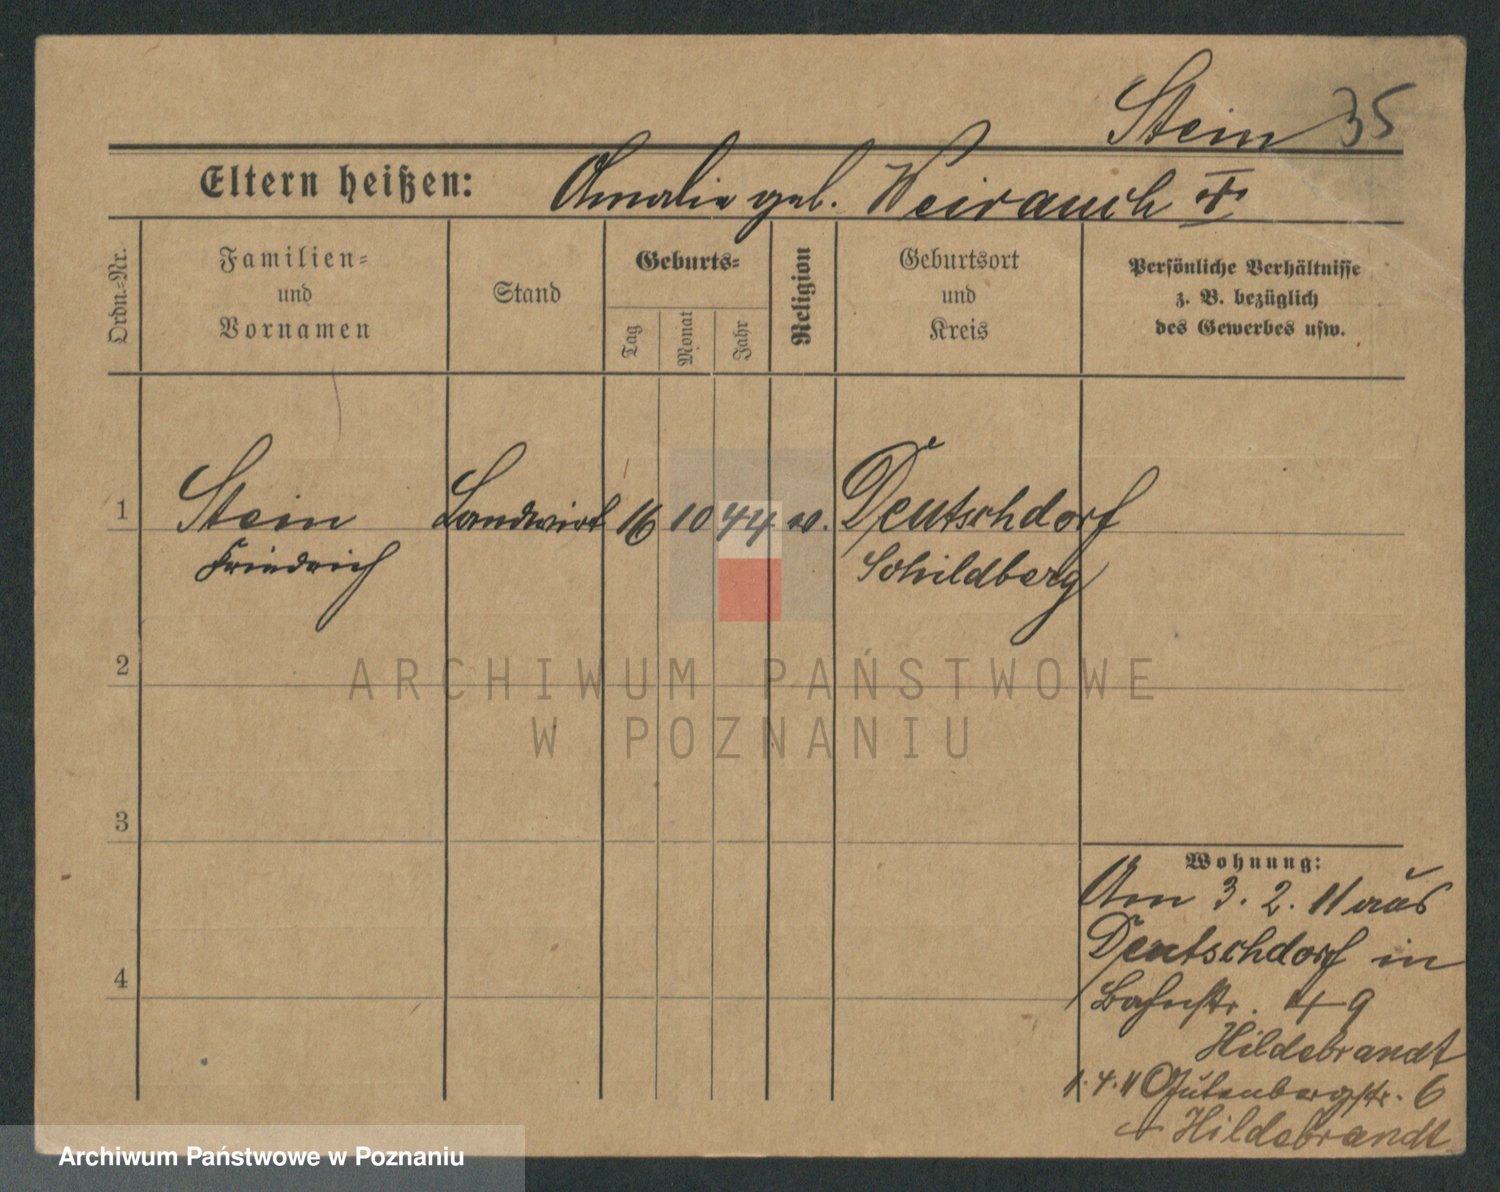 Stein 35
Eltern heißen: Amalie geb. Weirauch †
Ordn.=Nr.
Familien=
und
Vornamen
Stand
Geburts=
Tag
Monat
Jahr
Religion
Geburtsort
und
Kreis
Persönliche Verhältnisse
z. B. bezüglich
des Gewerbes usw.
1 Stein Landwirt 16 10 44 ev. Deutschdorf
Friedrich Schildberg
2
3
4
Wohnung:
Am 3. 2. 11 aus
Deutschdorf in
Bahnstr. 49
Hildebrandt
1. 4. 11 Gutenbergstr. 6
Hildebrandt
ARCHIWUM PAŃSTWOWE
W POZNANIU
Archiwum Państwowe w Poznaniu